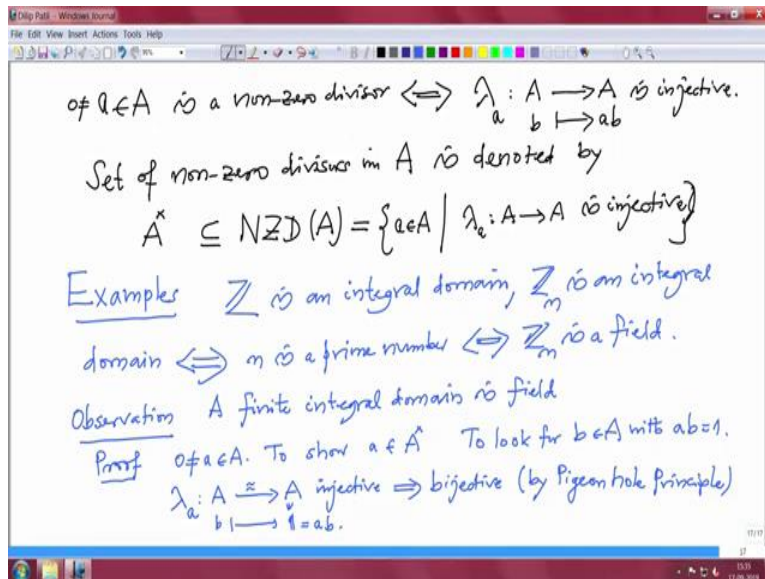 Dilip Patil - Windows Journal
File Edit View Insert Actions Tools Help
0≠ a∈A is a non-zero divisor ⟺ λ_a : A ⟶ A is injective.
b ⟼ ab
Set of non-zero divisors in A is denoted by
A^× ⊆ NZD(A) = {a∈A | λ_a : A→A is injective}
Examples ℤ is an integral domain, ℤ_n is an integral
domain ⟺ n is a prime number ⟺ ℤ_n is a field.
Observation A finite integral domain is field
Proof 0≠a∈A. To show a∈A^× To look for b∈A with ab=1.
λ_a : A ⟶^≈ A injective ⟹ bijective (by Pigeon hole Principle)
b ⟼ 1=ab.
17/17
17
15:35